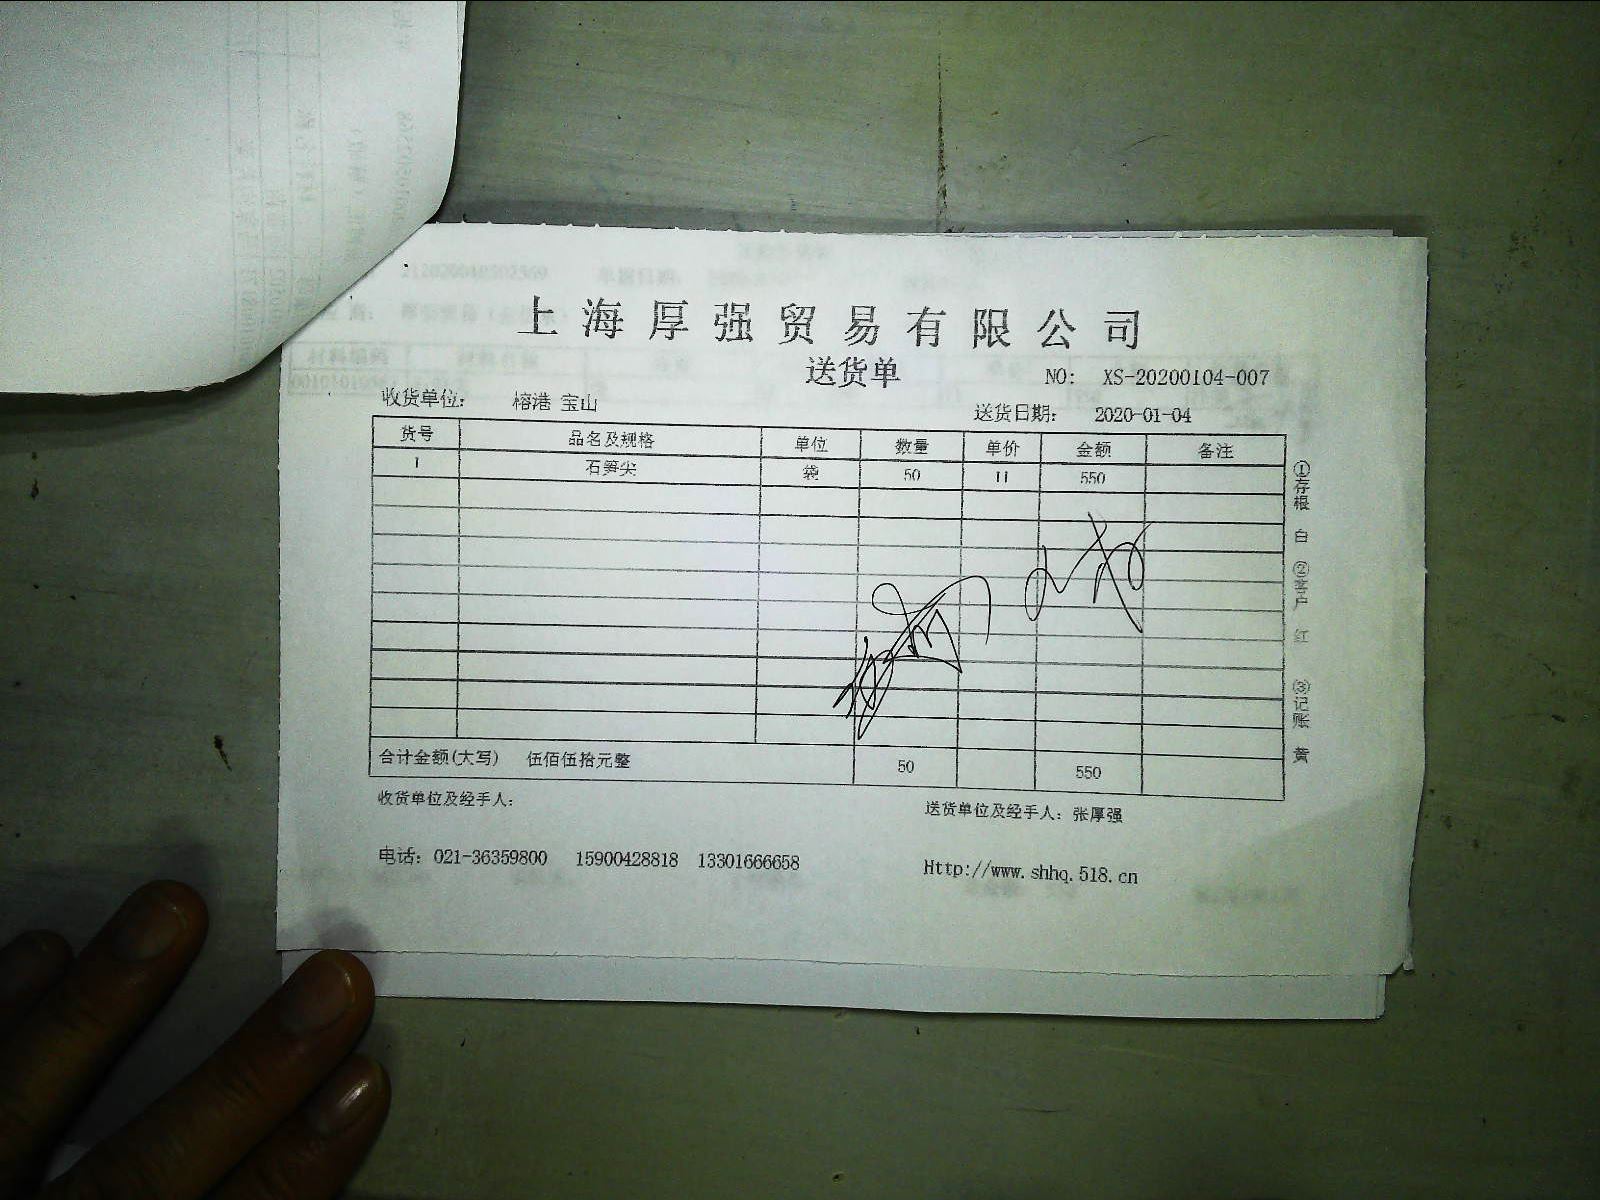 上海厚强贸易有限公司
送货单
NO: XS-20200104-007
收货单位: 榕港 宝山
送货日期: 2020-01-04
货号 品名及规格 单位 数量 单价 金额 备注
1 石笋尖 袋 50 11 550
合计金额(大写) 伍佰伍拾元整 50 550
收货单位及经手人:
送货单位及经手人: 张厚强
电话: 021-36359800 15900428818 13301666658
Http://www.shhq.518.cn
①存根 白 ②客户 红 ③记账 黄